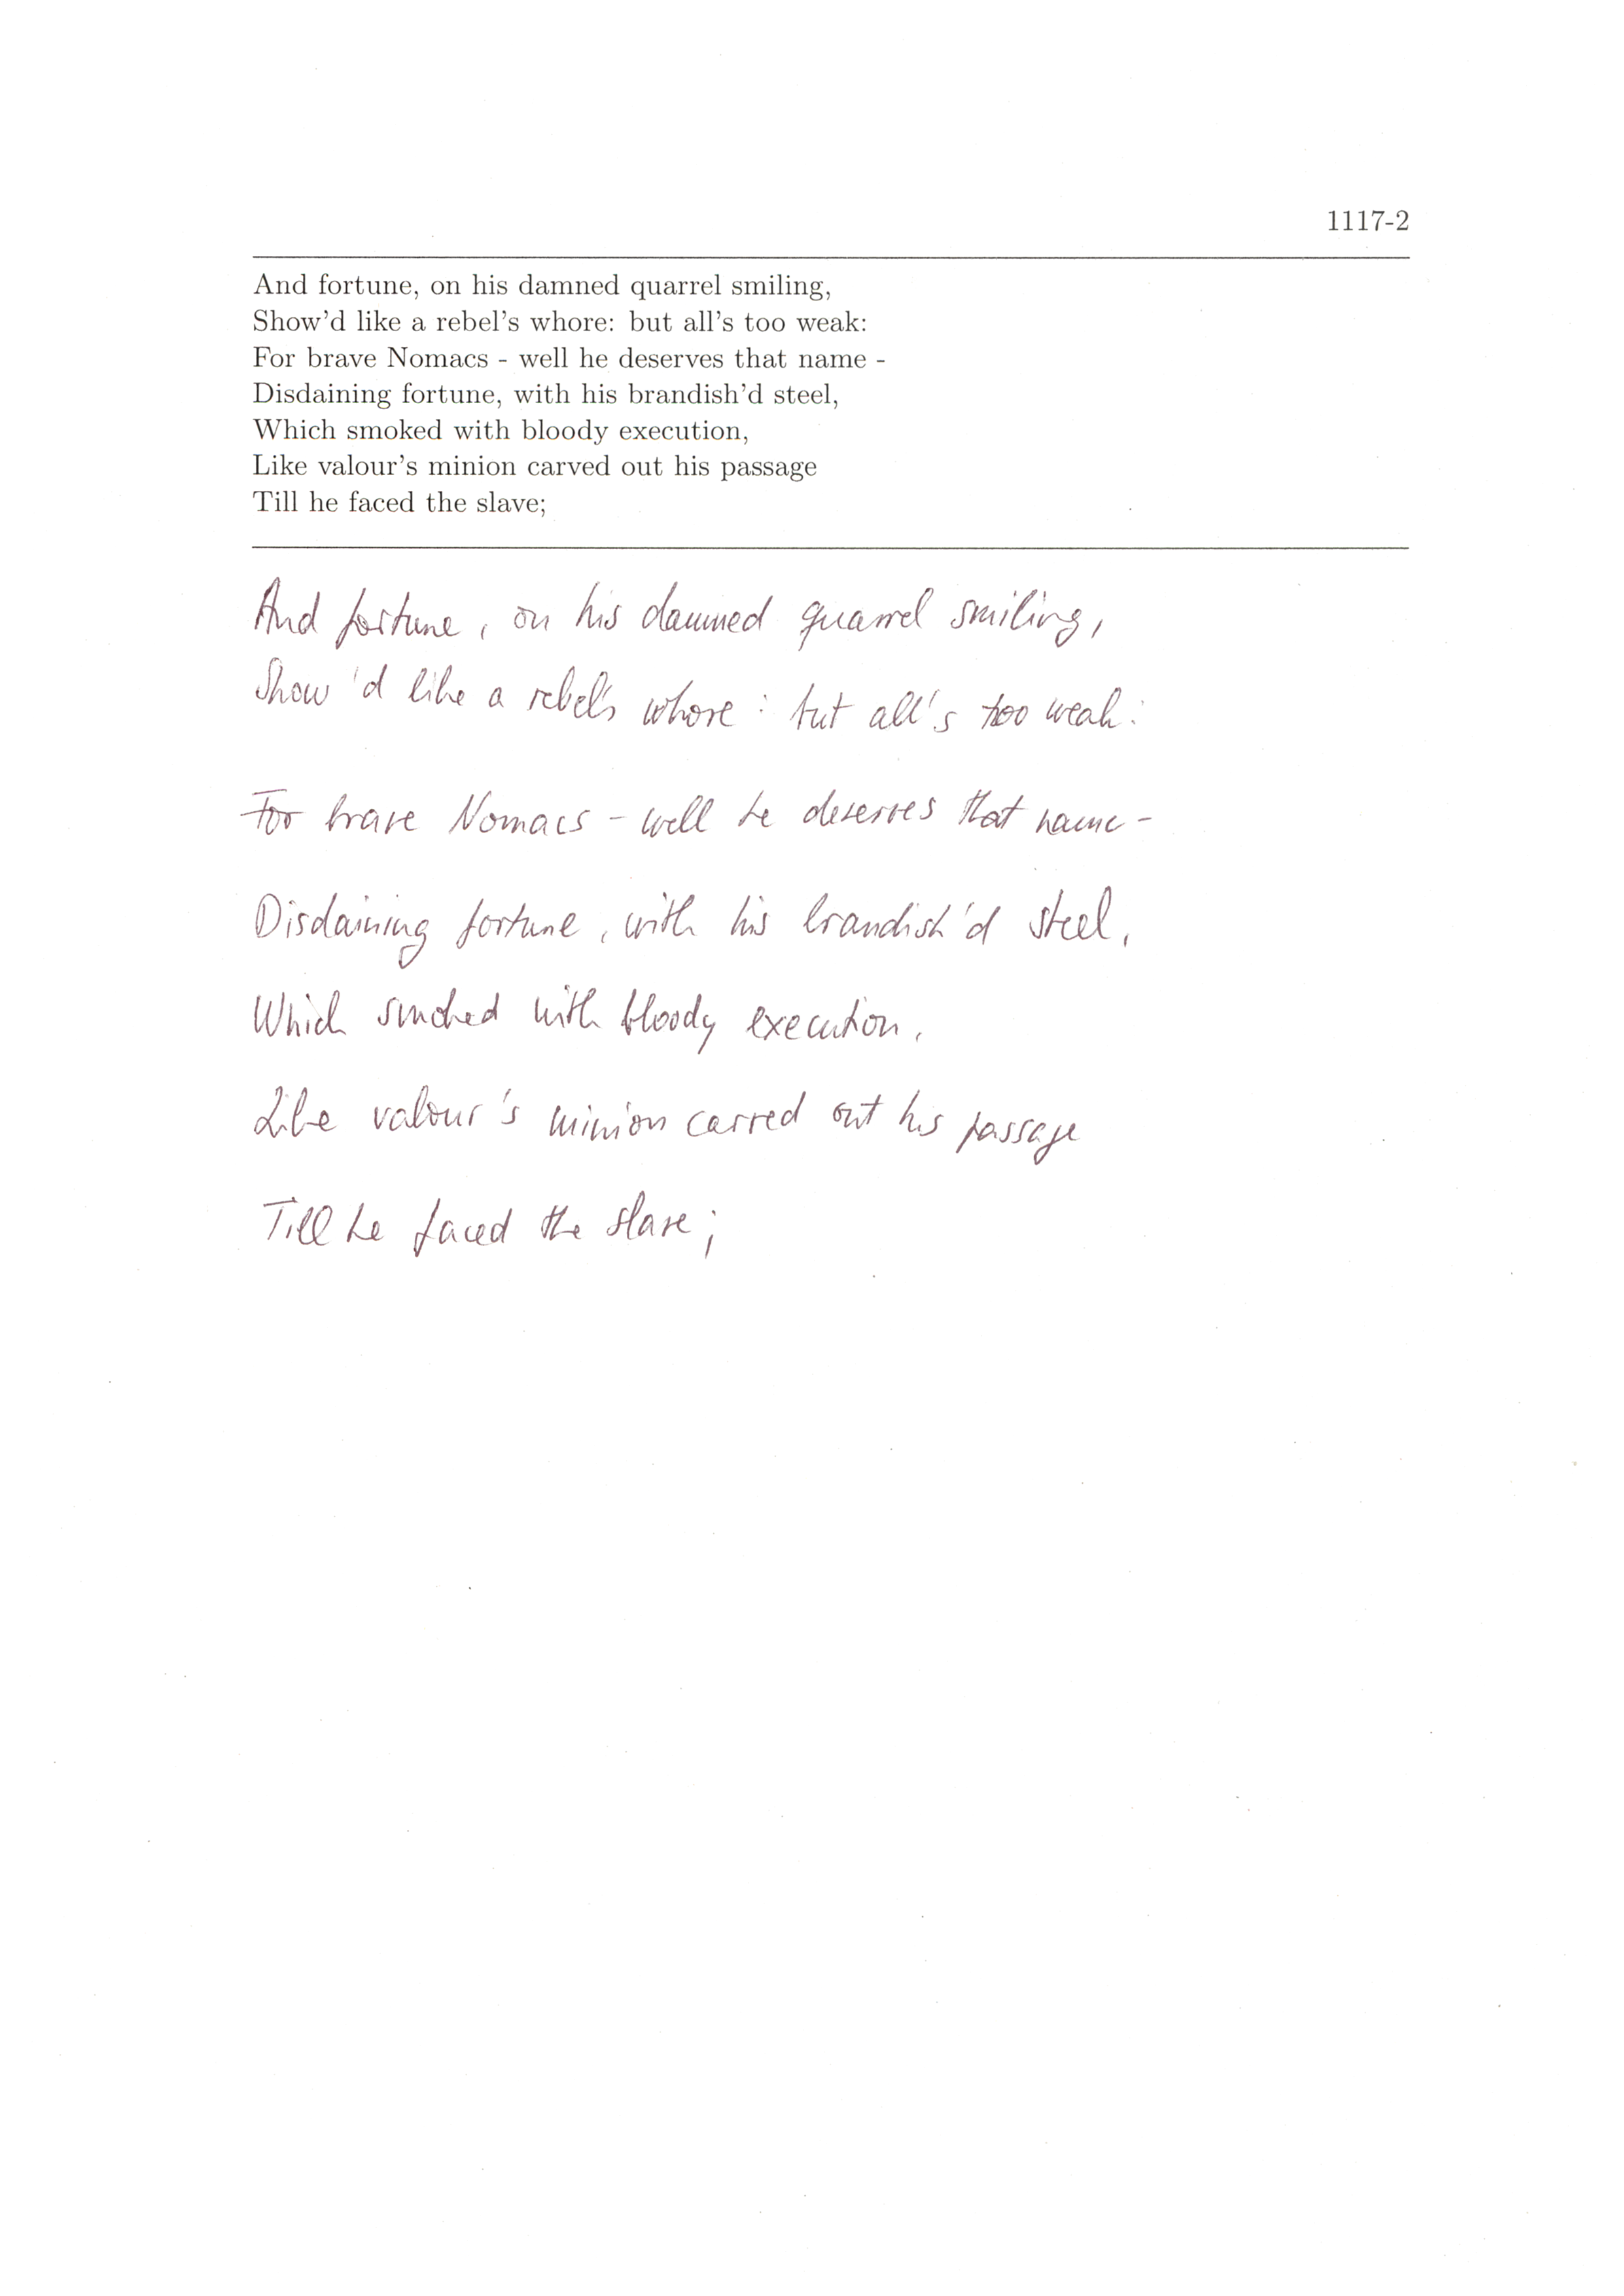 1117-2
And fortune, on his damned quarrel smiling,
Show'd like a rebel's whore: but all's too weak:
For brave Nomacs - well he deserves that name -
Disdaining fortune, with his brandish'd steel,
Which smoked with bloody execution,
Like valour's minion carved out his passage
Till he faced the slave;
And fortune, on his damned quarrel smiling,
Show'd like a rebel's whore: but all's too weak:
For brave Nomacs - well he deserves that name -
Disdaining fortune, with his brandish'd steel,
Which smoked with bloody execution,
Like valour's minion carved out his passage
Till he faced the slave;